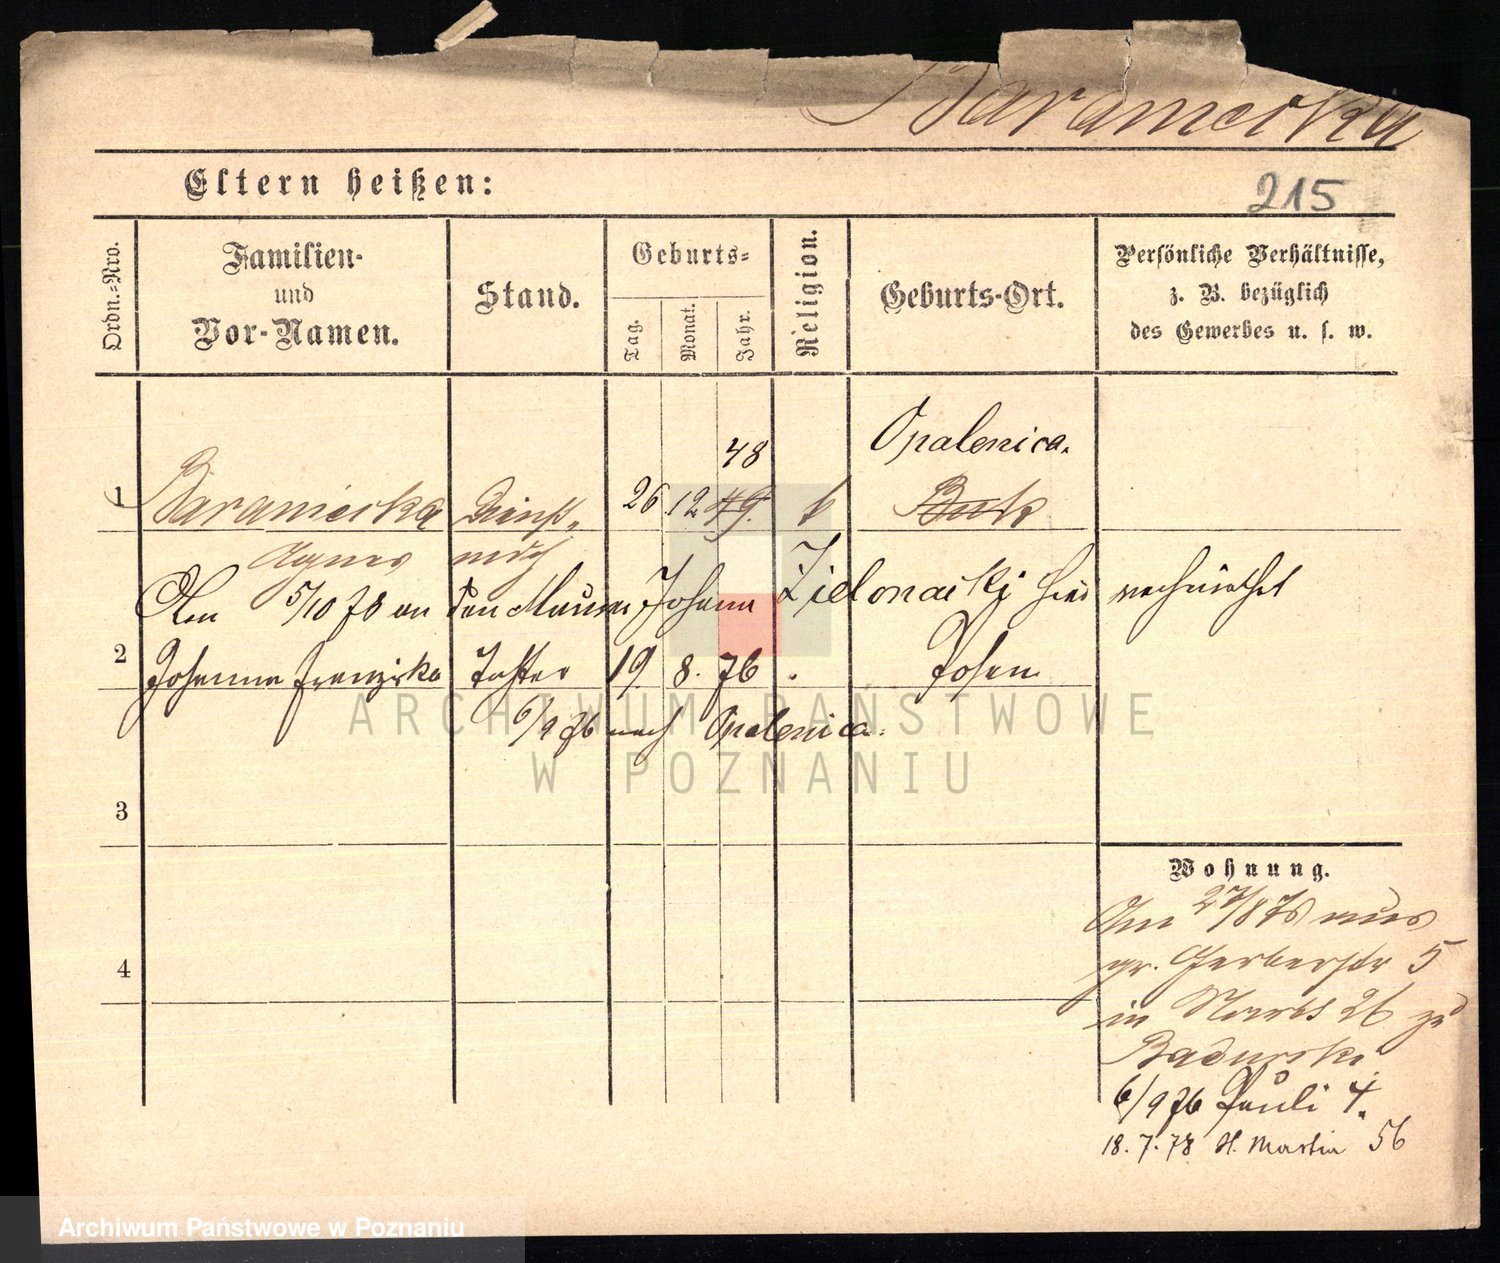 Baraniecka
Eltern heißen:
215
Ordn.-Nro.
Familien-
und
Vor-Namen.
Stand.
Geburts-
Tag.
Monat.
Jahr.
Religion.
Geburts-Ort.
Persönliche Verhältnisse,
z. B. bezüglich
des Gewerbes u. s. w.
48
Opalenica.
1 Baraniecka Dienst- 26 12 49. k Buk
Agnes mdch
Am 5/10 78 an den Maurer Johann Zielonacki hier verheirathet
2 Johanna Franziska Tochter 19. 8. 76 Posen
6/9 76 nach Opalenica.
3
Wohnung.
Am 27/8 75 aus
gr. Gerberstr 5
4
in Markt 26 zu
Badurski
6/9 76 Pauli 4.
18.7.78 St. Martin 56
ARCHIWUM PAŃSTWOWE
W POZNANIU
Archiwum Państwowe w Poznaniu